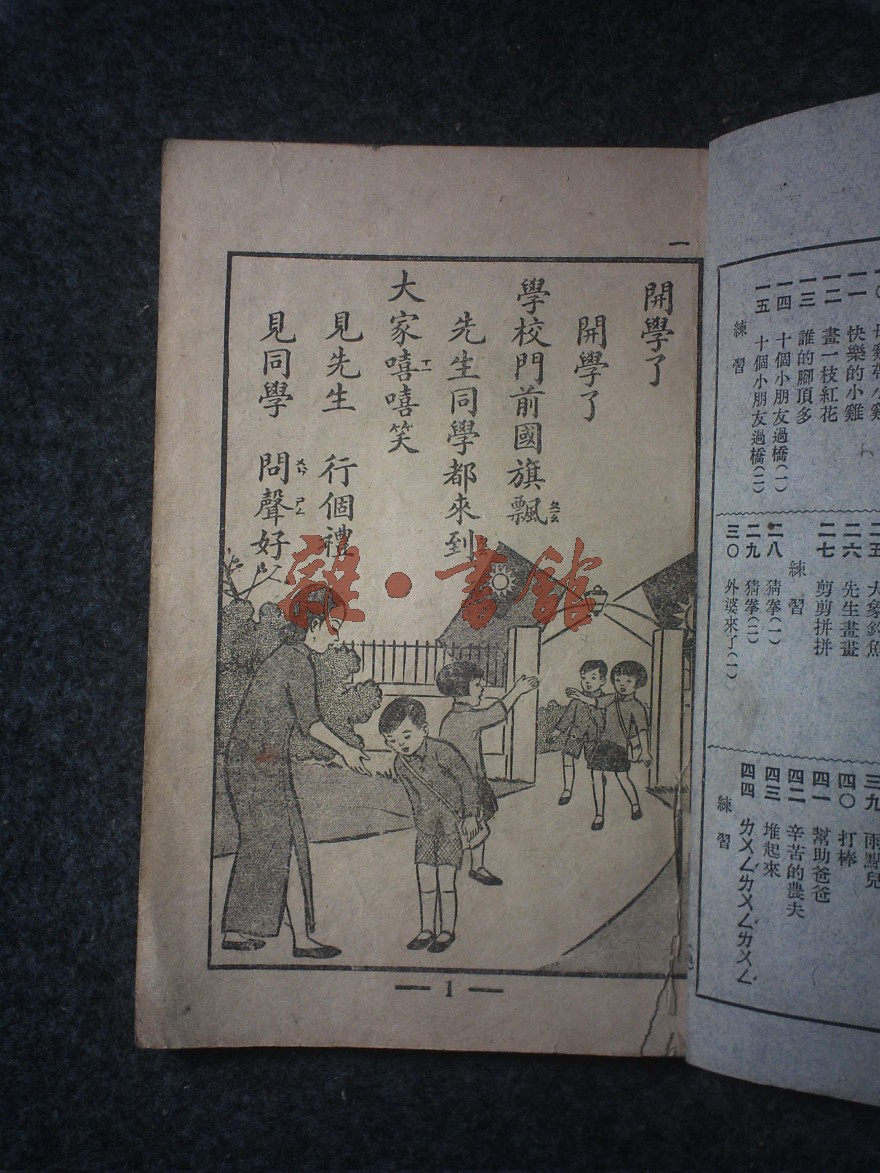 一
開學了
開學了
學校門前國旗飄
ㄆㄧㄠ
先生同學都來到
大家嘻嘻笑
ㄒㄧ
見先生 行個禮
見同學 問聲好
ㄨㄣ ㄕㄥ
— 1 —
快樂的小雞
一一
一二 畫一枝紅花
一三 誰的腳頂多
一四 十個小朋友過橋(一)
一五 十個小朋友過橋(二)
練習
二五 大象釣魚
二六 先生畫畫
二七 剪剪拼拼
練習
二八 猜拳(一)
二九 猜拳(二)
三〇 外婆來了(一)
三九 雨點兒
四〇 打棒
四一 幫助爸爸
四二 辛苦的農夫
四三 堆起來
四四 ㄌㄨㄥㄌㄨㄥㄌㄨㄥ
練習
雜·書館